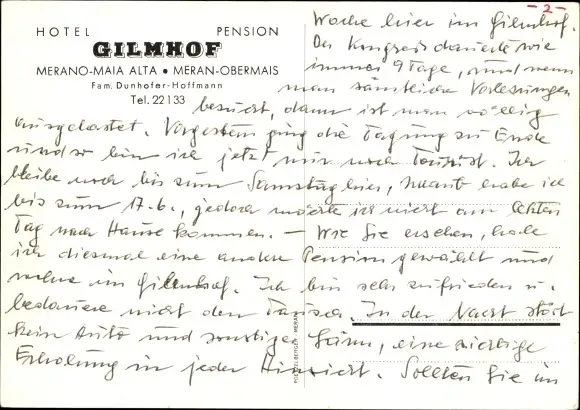 - 2 -
HOTEL PENSION
GILMHOF
MERANO-MAIA ALTA • MERAN-OBERMAIS
Fam. Dunhofer-Hoffmann
Tel. 22133
Woche hier im Gilmhof.
Der Kongress dauerte wie
immer 9 Tage, und wenn
man sämtliche Vorlesungen
besucht, dann ist man völlig
ausgelastet. Vorgestern ging die Tagung zu Ende
und so bin ich jetzt nur noch Tourist. Ich
bleibe noch bis zum Samstag hier, Urlaub habe ich
bis zum 17.6., jedoch möchte ich nicht am letzten
Tag nach Hause kommen. — Wie Sie ersehen, habe
ich diesmal eine andere Pension gewählt und
wohne im Gilmhof. Ich bin sehr zufrieden u.
bedauere nicht den Tausch. In der Nacht stört
kein Auto und sonstiger Lärm, eine richtige
Erholung in jeder Hinsicht. Sollten Sie im